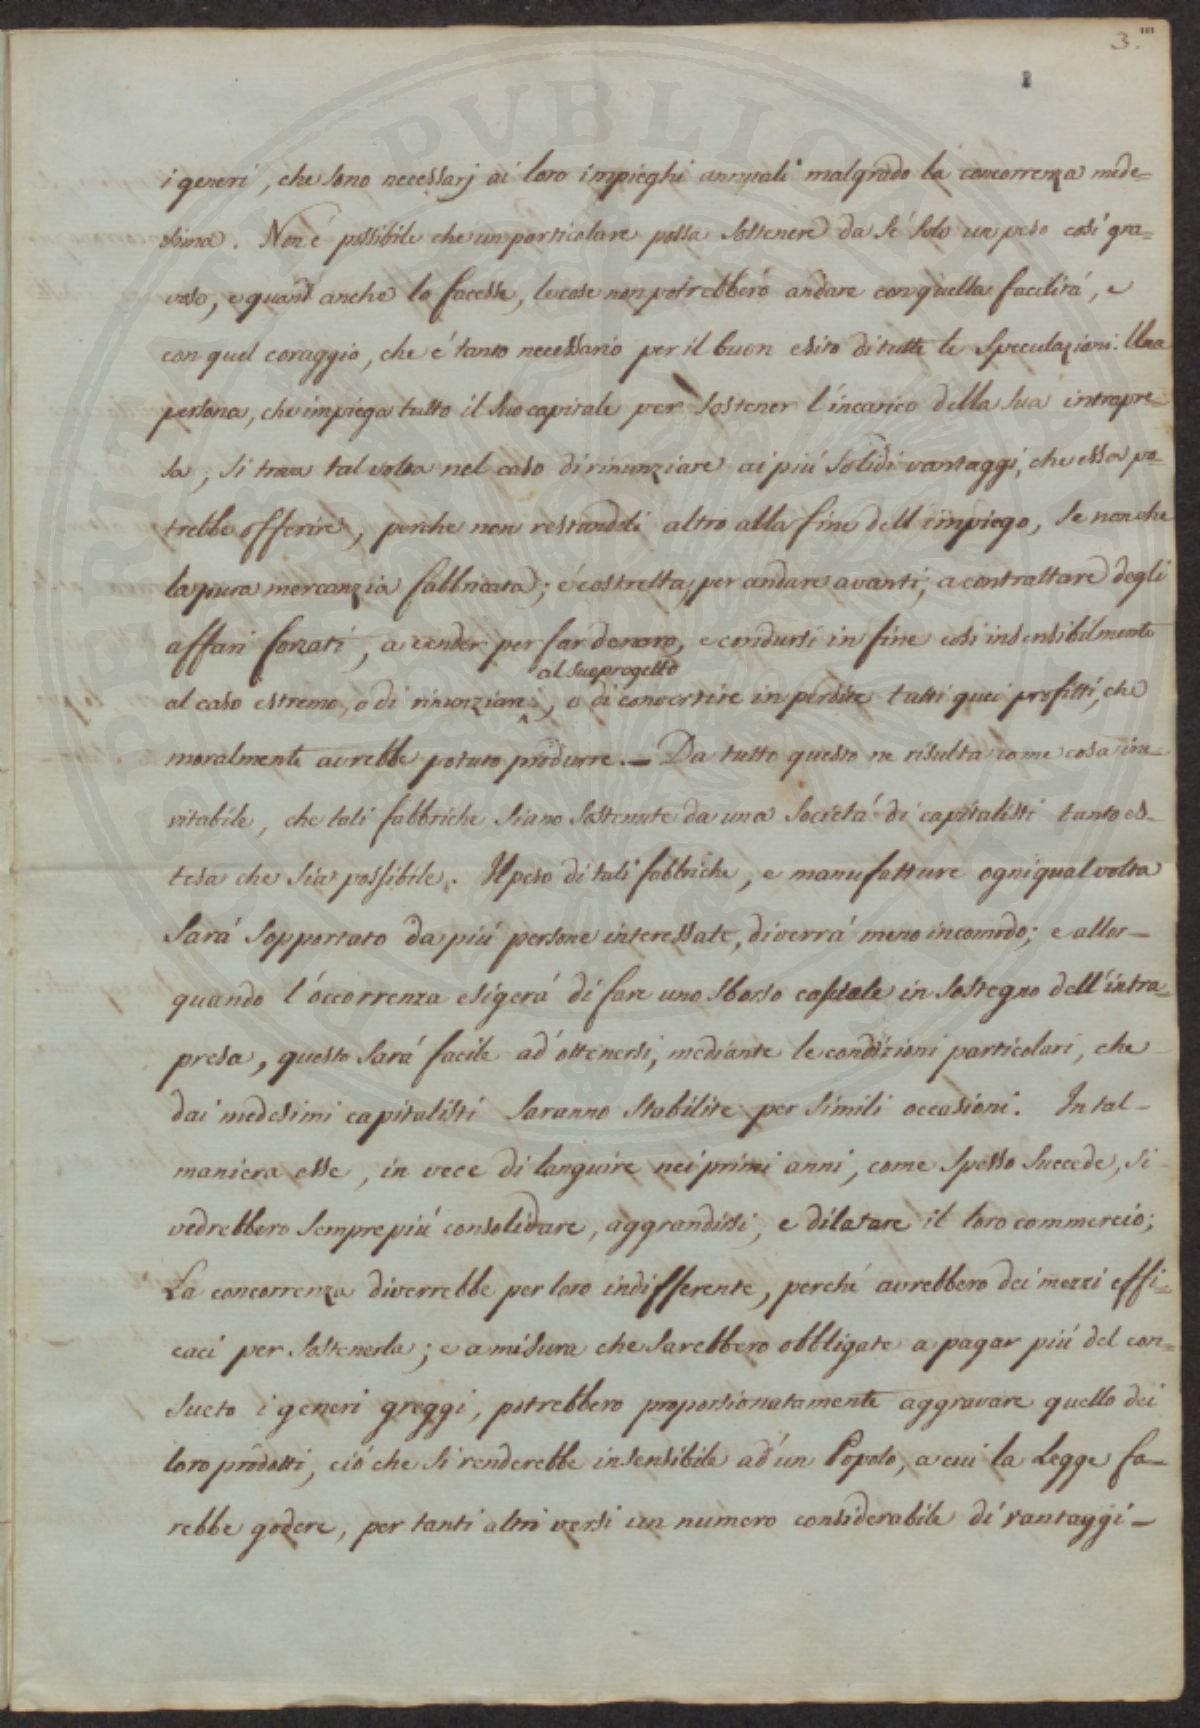 3.'''
i generi, che sono necessarj ai loro impieghi annuali malgrado la concorrenza mede=
sima. Non é possibile che un particolare possa sostenere da sé solo un peso cosí gra=
voso, e quand' anche lo facesse, le cose non potrebbero andare con quella facilitá, e
con quel coraggio, che é tanto necessario per il buon esito di tutte le speculazioni. Una
persona, che impiega tutto il suo capitale per sostener l'incarico della sua intrapre-
sa, si trova tal volta nel caso di rinunziare ai piú solidi vantaggi, che essa po-
trebbe offerire, perche non restandoli altro alla fine dell' impiego, se non che
la pura mercanzia fabbricata; é costretta, per andare avanti, a contrattare degli
affari forzati, a vender per far denaro, e condursi in fine cosi insensibilmente
al suo progetto
al caso estremo, o di rinunziare ^, o di convertire in perdite tutti quei profitti, che
moralmente avrebbe potuto produrre. — Da tutto questo ne risulta come cosa ine-
vitabile, che tali fabbriche siano sostenute da una societá di capitalisti tanto es-
tesa che sia possibile. Il peso di tali fabbriche, e manufatture ogni qual volta
sará sopportato da piú persone interessate, diverrá meno incomodo; e allor—
quando l'occorrenza esigerá di fare uno sborso casuale in sostegno dell' intra-
presa, questo sará facile ad ottenersi, mediante le condizioni particolari, che
dai medesimi capitalisti saranno stabilite per simili occasioni. In tal-
maniera esse, in vece di languire nei primi anni, come spesso succede, si-
vedrebbero sempre piú consolidare, aggrandirsi, e dilatare il loro commercio;
La concorrenza diverrebbe per loro indifferente, perché avrebbero dei mezzi effi=
caci per sostenerla; e a misura che sarebbero obbligate a pagar piú del con=
sueto i generi greggi, potrebbero proporsionatamente aggravare quello dei
loro prodotti, ció che si renderebbe insensibile ad' un Popolo, a cui la Legge fa—
rebbe godere, per tanti altri versi un numero considerabile di vantaggi—
PUBLICA